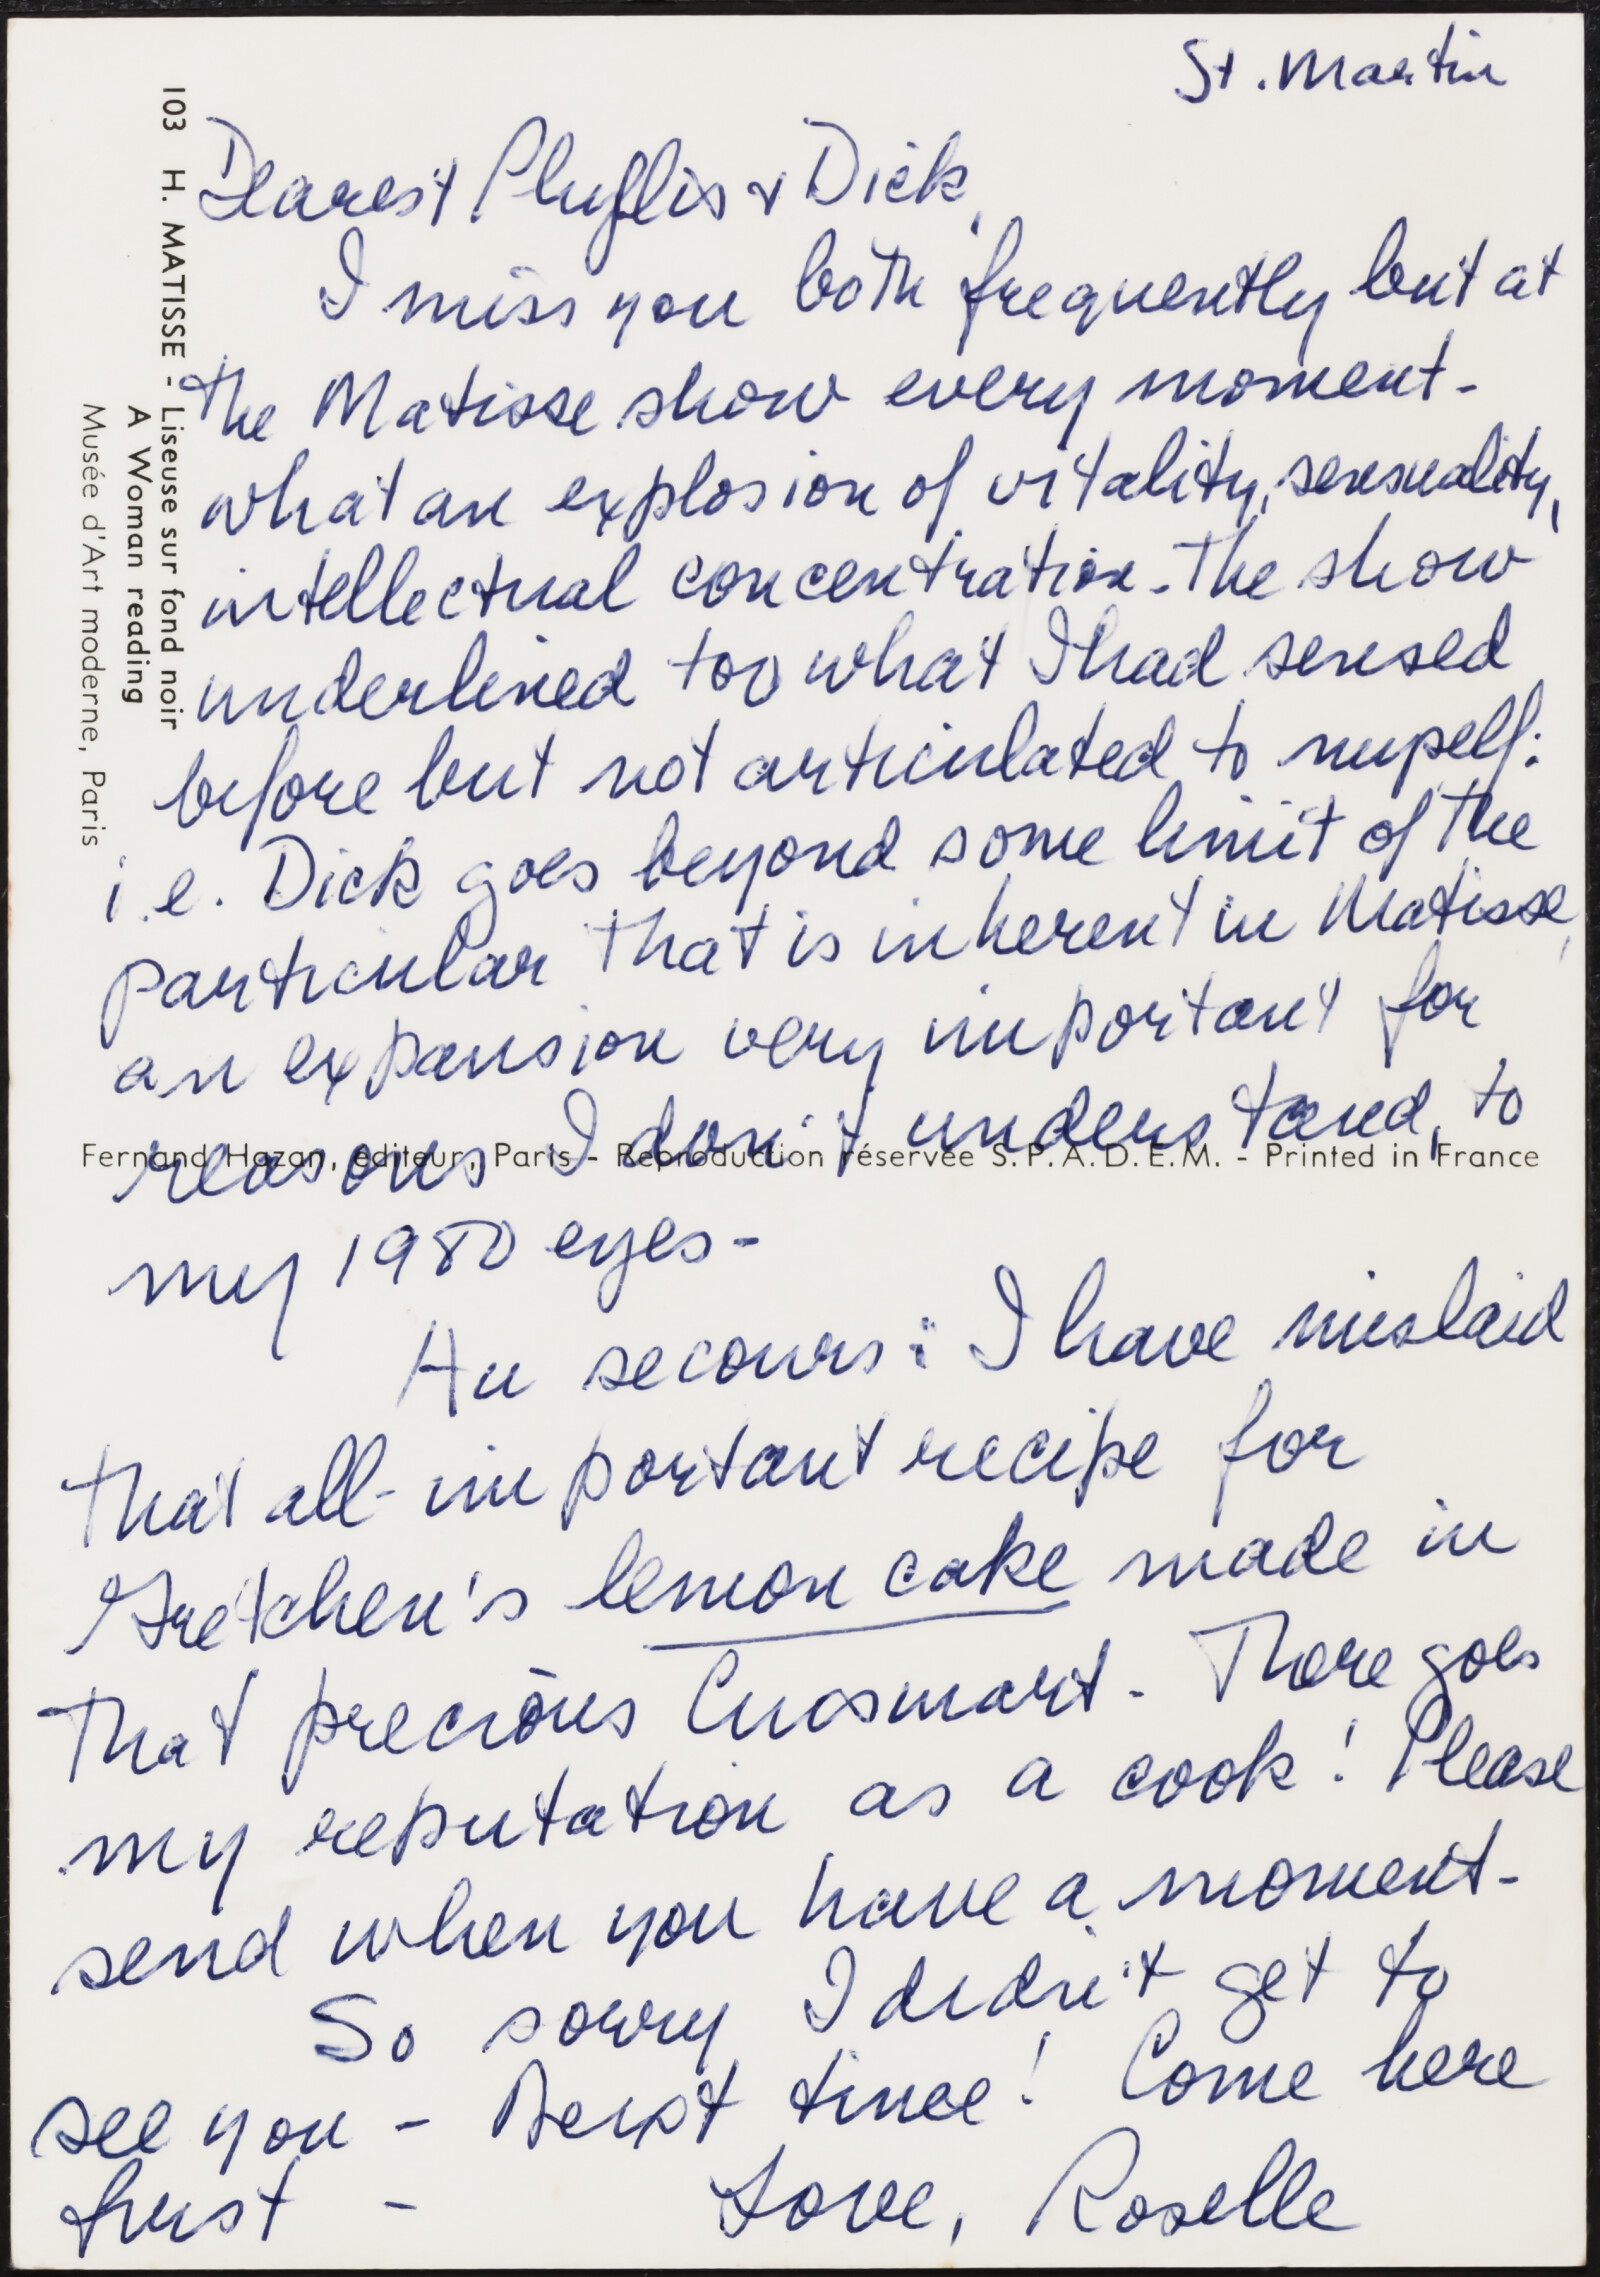 St. Martin
Dearest Phyllis & Dick,
I miss you both frequently but at
the Matisse show every moment-
what an explosion of vitality, sensuality,
intellectual concentration. The show
underlined too what I had sensed
before but not articulated to myself:
i.e. Dick goes beyond some limit of the
particular that is inherent in Matisse,
an expansion very important for
reasons I don't understand, to
my 1980 eyes-
Au secours: I have mislaid
that all-important recipe for
Gretchen's lemon cake made in
that precious Cuosmart. There goes
my reputation as a cook! Please
send when you have a moment-
So sorry I didn't get to
see you - Next time! Come here
first - Love, Roselle
103 H. MATISSE - Liseuse sur fond noir
A Woman reading
Musée d'Art moderne, Paris
Fernand Hazan, éditeur, Paris - Reproduction réservée S.P.A.D.E.M. - Printed in France